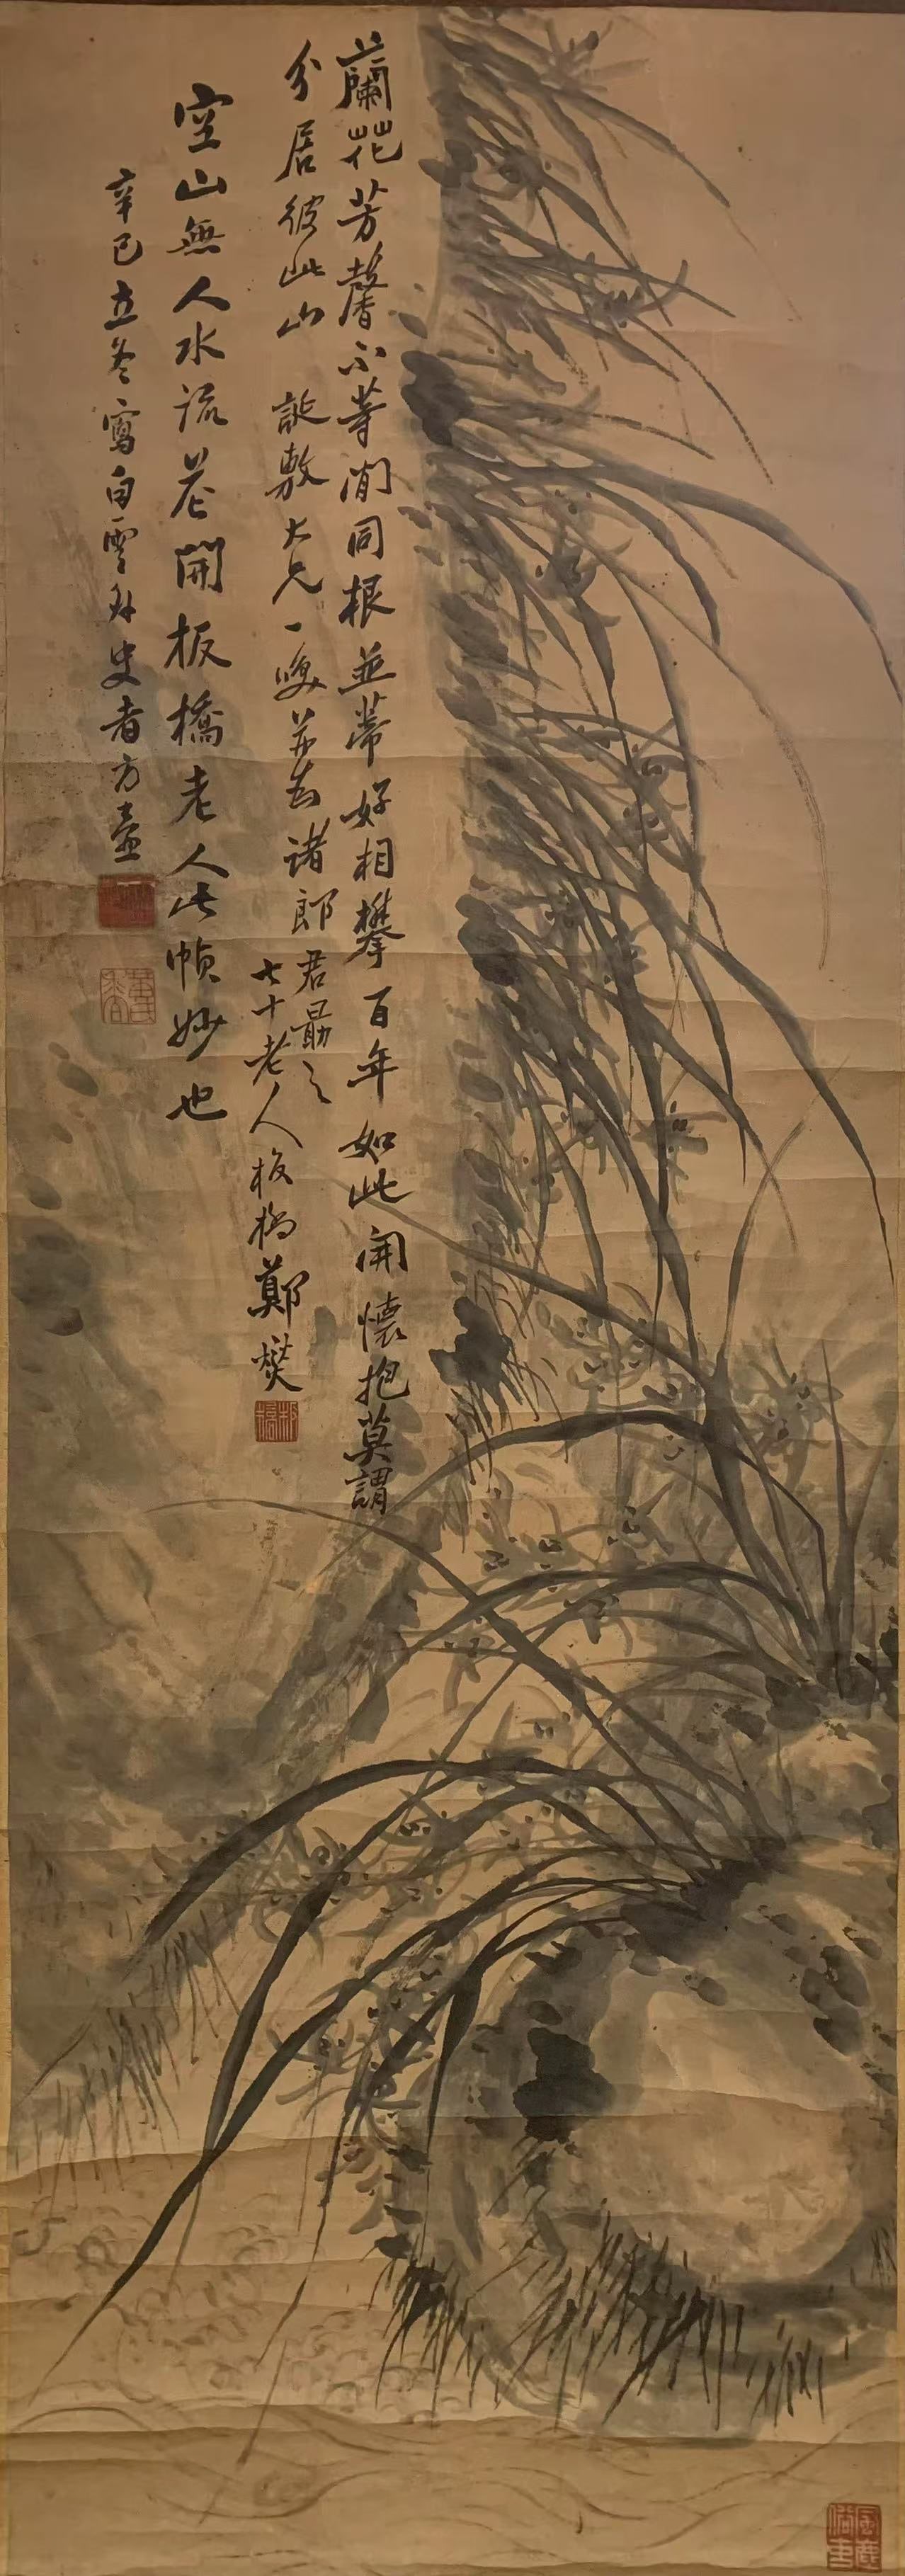 蘭花芳馨小等閒同根並蒂好相攀百年如此開懷抱莫謂
分居彼此山 誕敷大兄一嘆并為諸郎君勗之
七十老人板橋鄭燮
空山無人水流花開板橋老人此幀妙也
辛巳立冬寫白雲外史者方壺